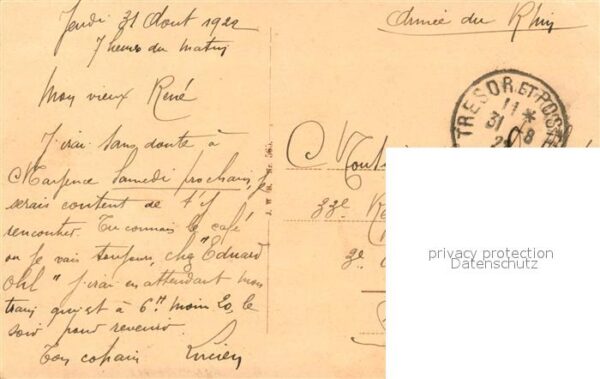 Jeudi 31 Aout 1922
7 heures du matin
Mon vieux René
J'irai sans doute à
Mayence Samedi prochain, je
serais content de t'y
rencontrer. Tu connais le café
ou je vais toujours, chez "Eduard
Ohl" j'irai en attendant mon
train qui est à 6h moins 20, le
soir pour revenir.
Ton copain Lucien
Armée du Rhin
TRESOR ET POSTES
11 *
31 8
2
J. W. B. Nr. 565.
33e
3e
privacy protection
Datenschutz